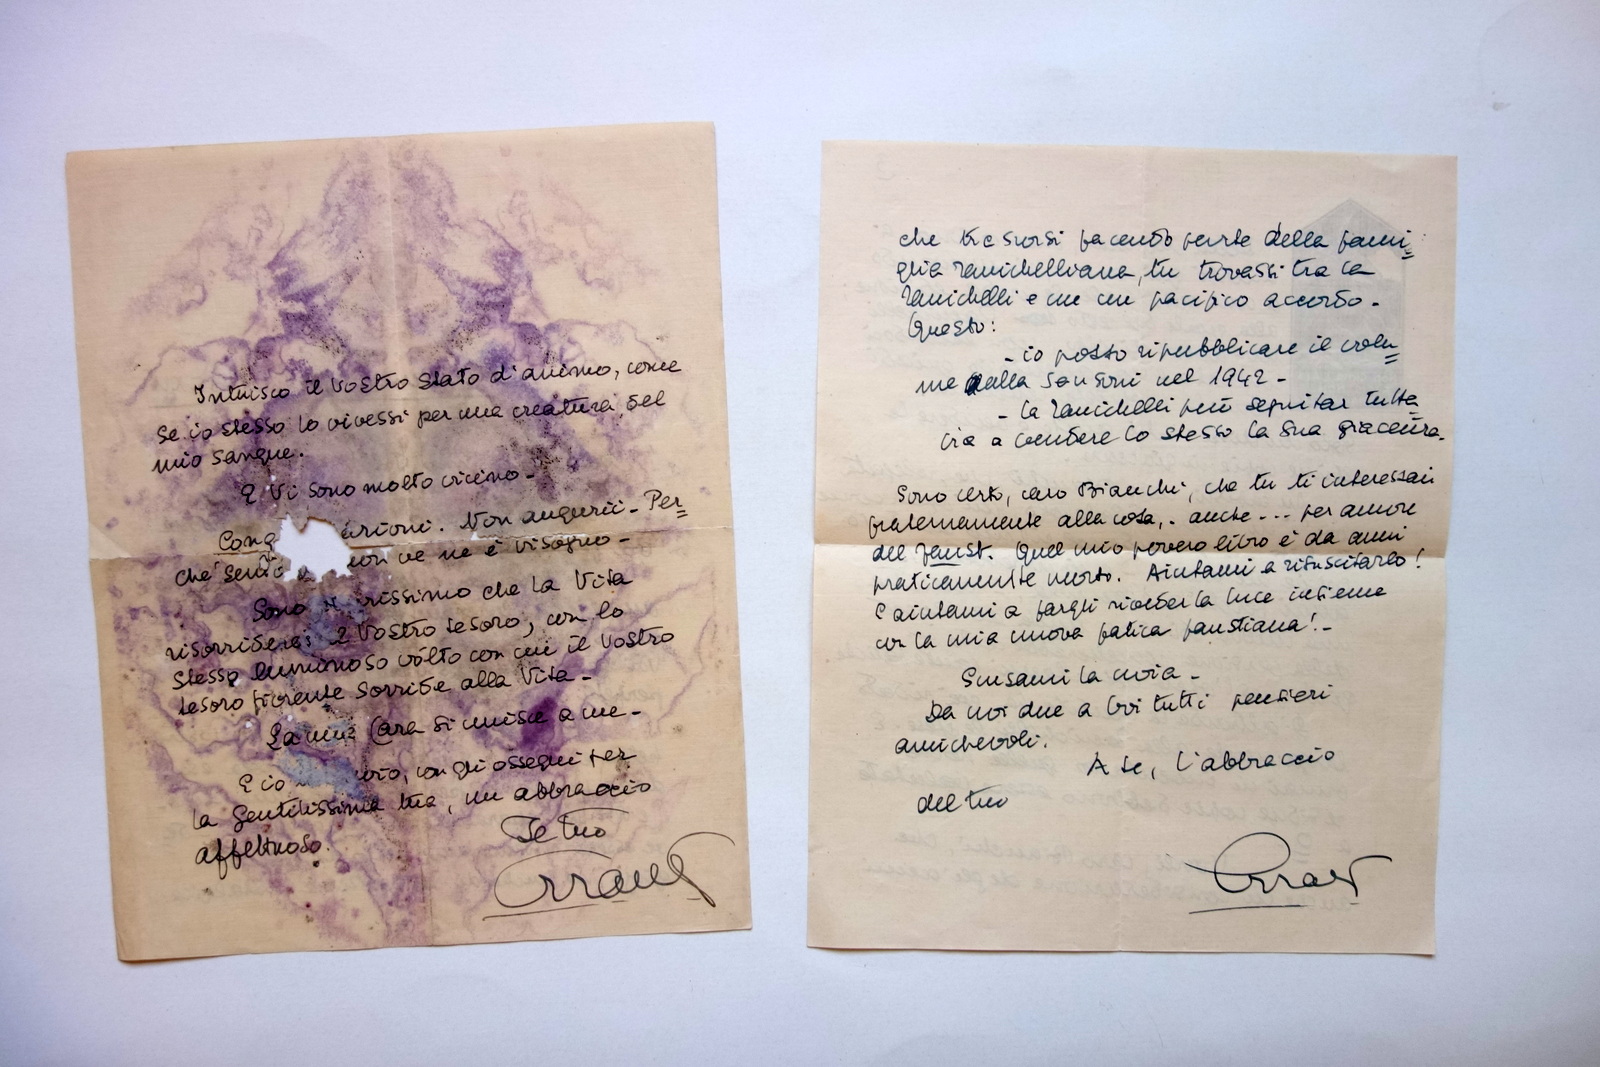 Intuisco il Vostro stato d'animo, come
se io stesso lo vivessi per una creatura del
mio sangue.
E Vi sono molto vicino -
Cong azioni. Non augurii - Per=
che' non ve ne è bisogno -
Sono rissimo che la Vita
risorriderà Vostro tesoro, con lo
stesso luminoso vólto con cui il Vostro
tesoro fiorente sorride alla Vita -
La mia Cara si unisce a me -
E io con gli ossequi per
la Gentilissima tua, un abbraccio
affettuoso.
Il tuo
Errante
che facendo parte della fami=
glia zanichelliana, tu trovassi tra la
Zanichelli e me un pacifico accordo -
Questo:
- io posso ripubblicare il volu=
me dalla Sansoni nel 1942 -
- la Zanichelli può seguitar tutta=
via a vendere lo stesso la sua giacenza.
Sono certo, caro Bianchi, che tu ti interessai
fraternamente alla cosa, - anche --- per amore
del Faust. Quel mio povero libro è da anni
praticamente morto. Aiutami a risuscitarlo!
E aiutami a fargli riveder la luce insieme
con la mia nuova fatica faustiana! -
Scusami la noia -
Da noi due a Voi tutti pensieri
amichevoli.
A te, l'abbraccio
del tuo
Errante